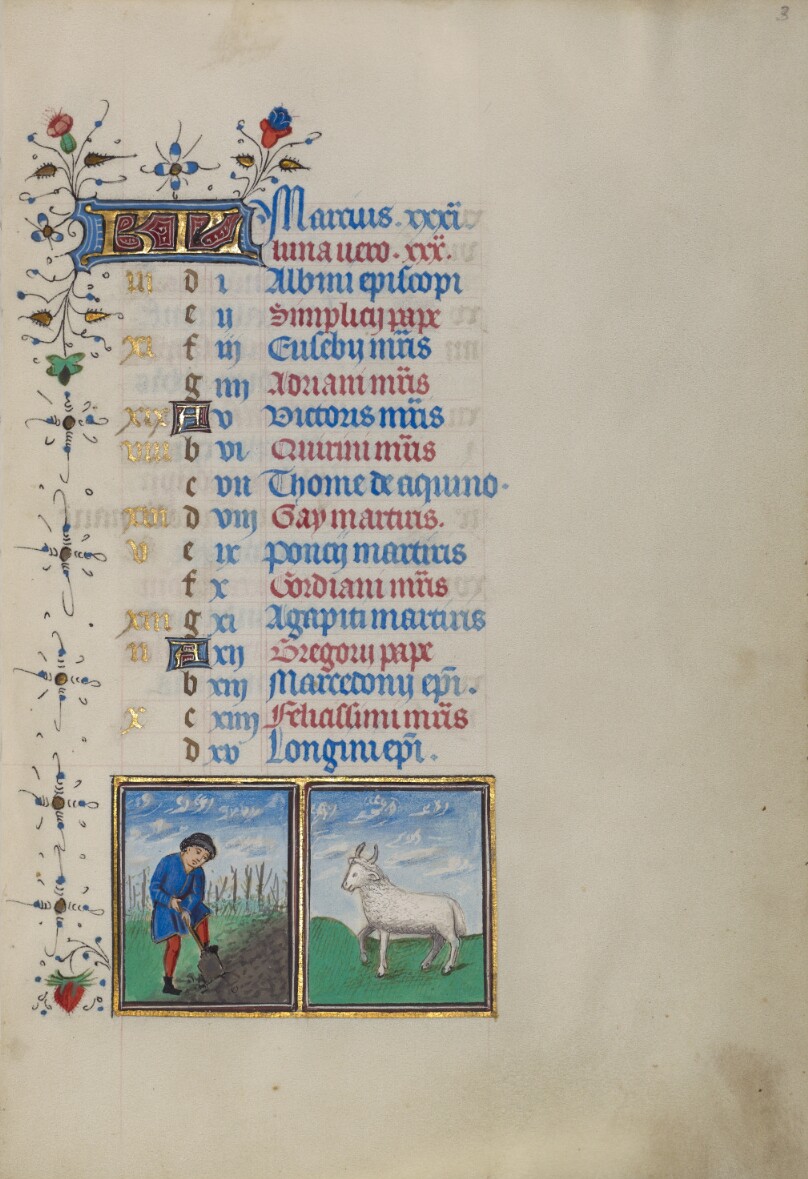 3
KL Marcius. xxxi
luna vero. xxx.
iii d i Albini episcopi
e ij Simplicij pape
xi f iij Eusebij mr̃is
g iiij Adriani mr̃is
xix A v Victoris mr̃is
viii b vi Quirini mr̃is
c vii Thome de aquino.
xvi d viij Gay martiris.
v e ix Poncij martiris
f x Gordiani mr̃is
xiii g xi Agapiti martiris
ii A xij Gregorij pape
b xiij Marcedonij ep̃i.
x c xiiij Felicissimi mr̃is
d xv Longini ep̃i.